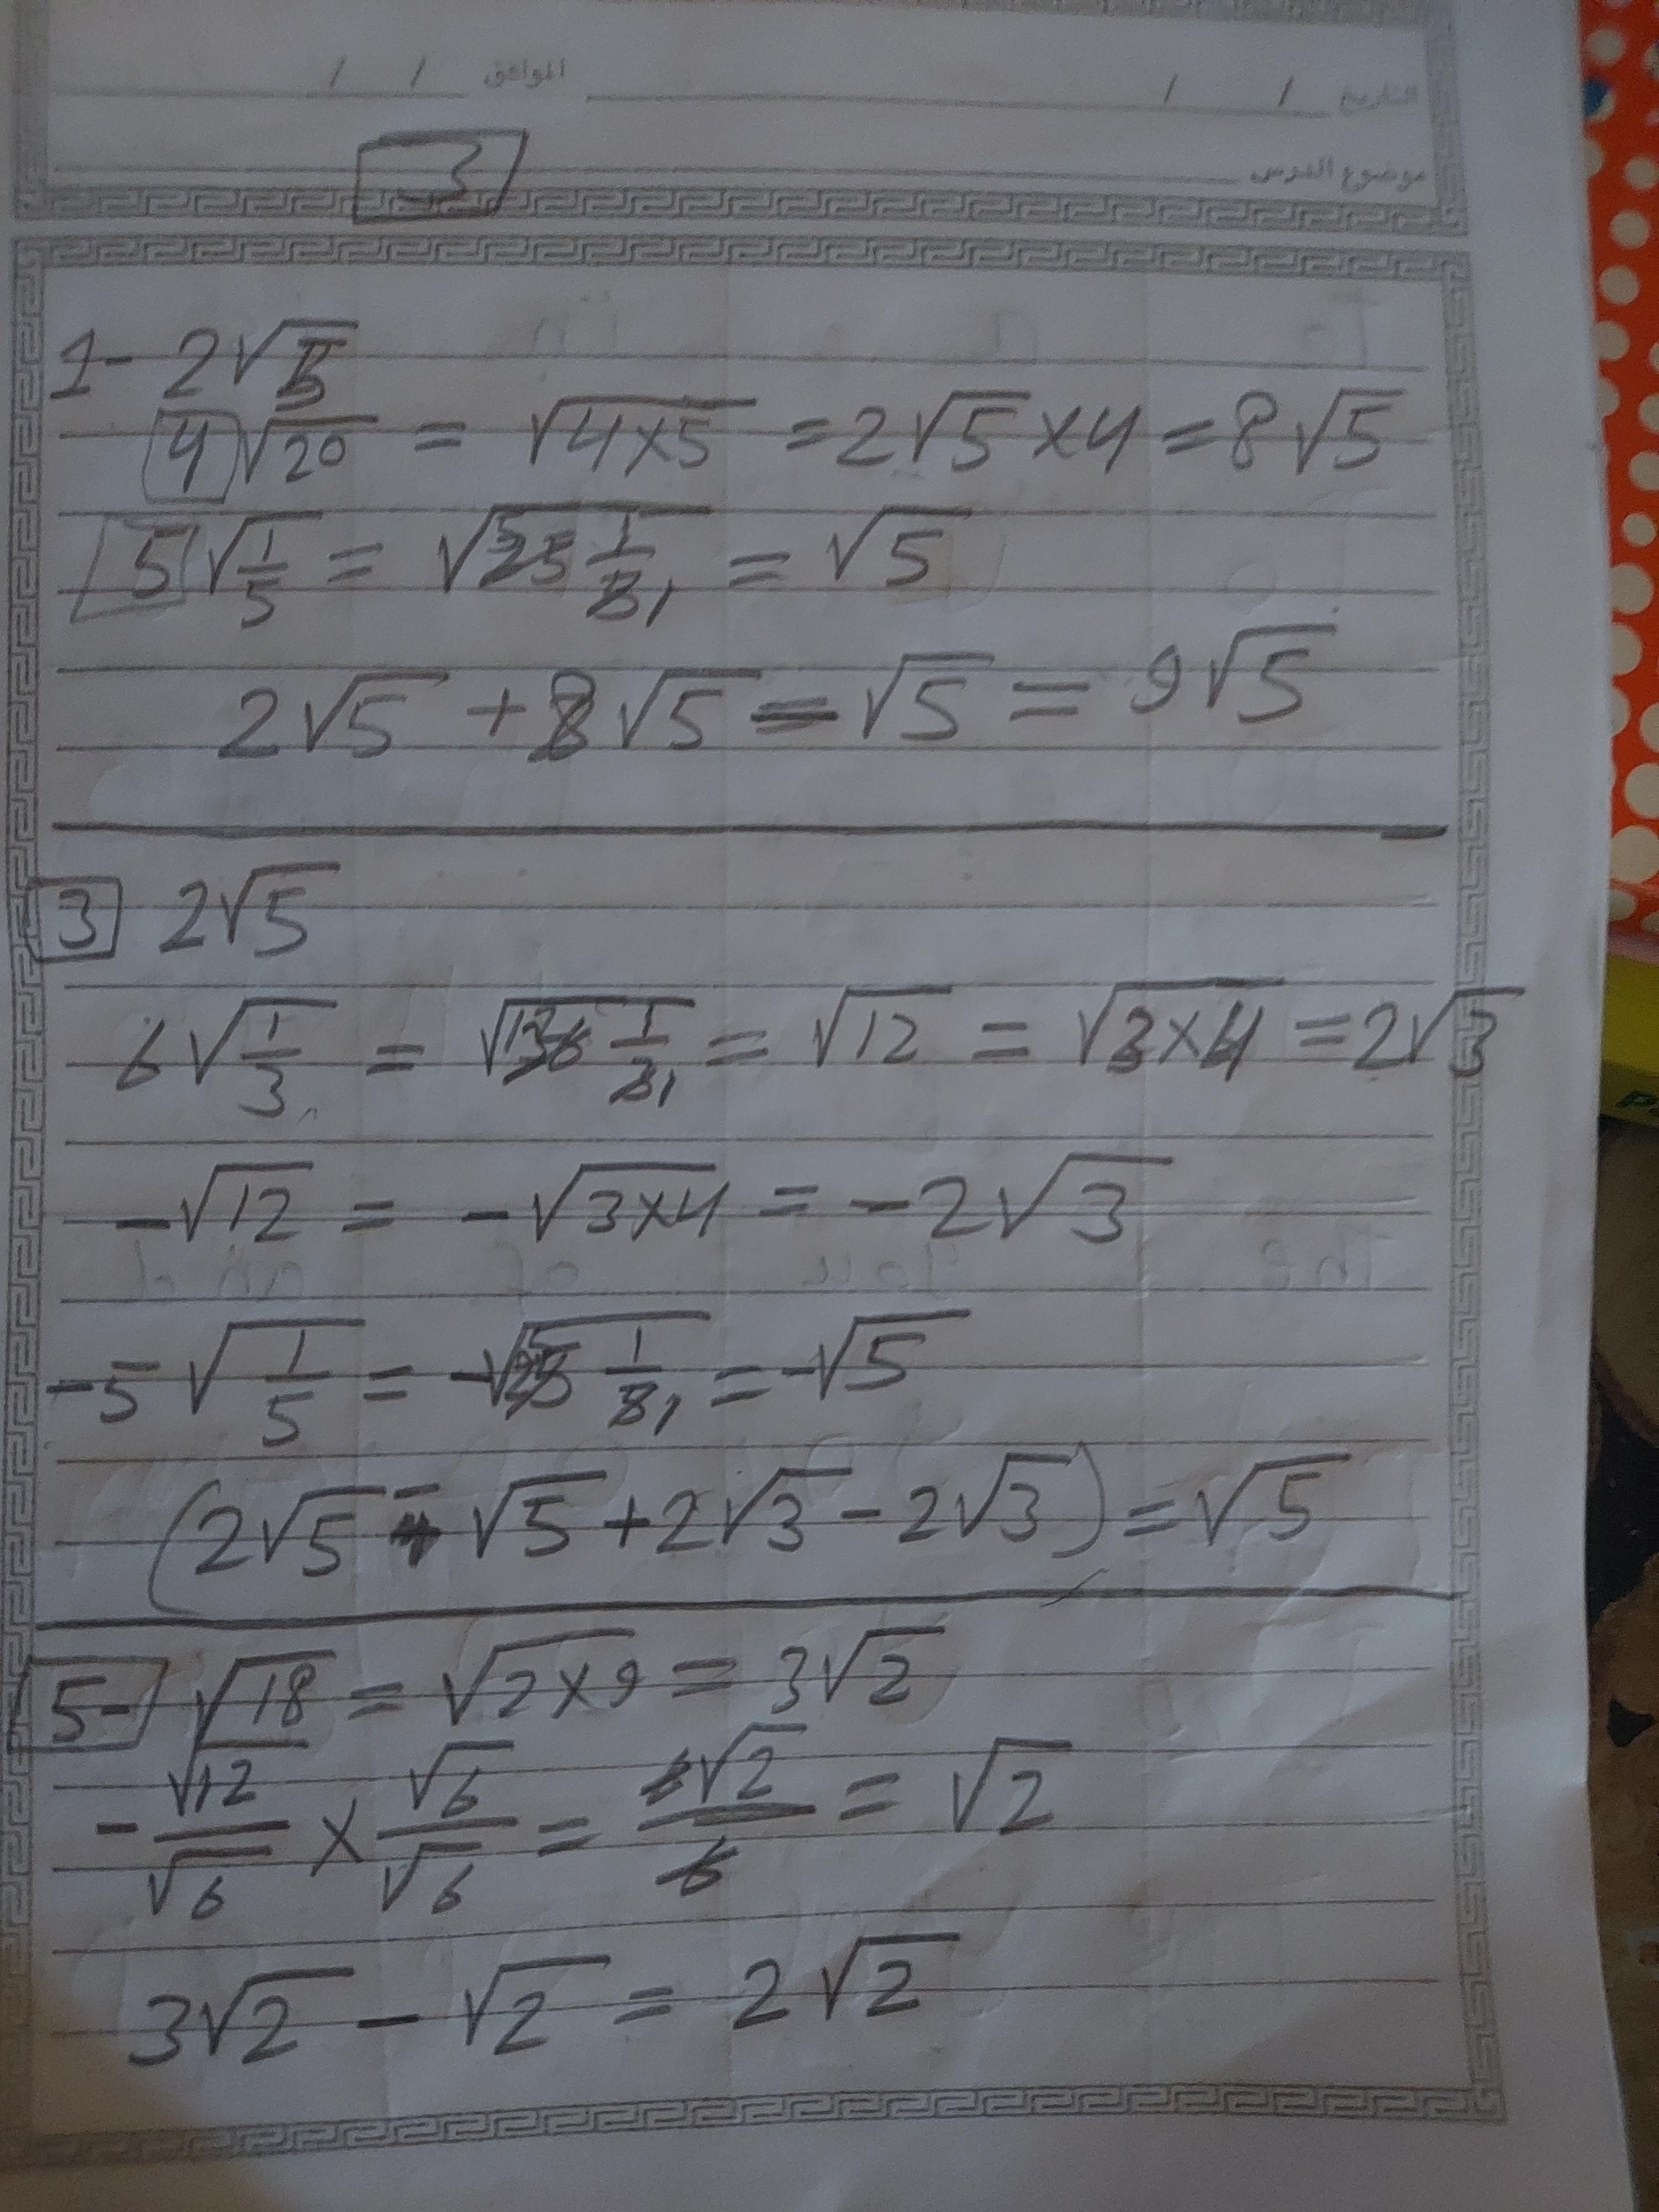 التاريخ / / الموافق / /
موضوع الدرس
3
1- 2√5
4√20 = √4×5 = 2√5 ×4 = 8√5
5√1/5 = √25 5 1/5 1 = √5
2√5 + 8√5 - √5 = 9√5
3 2√5
6√1/3 = √36 12 1/3 1 = √12 = √3×4 = 2√3
-√12 = -√3×4 = -2√3
-5√1/5 = -√25 5 1/5 1 = -√5
(2√5 - √5 + 2√3 - 2√3) = √5
5- √18 = √2×9 = 3√2
-√12/√6 × √6/√6 = 6√2/6 = √2
3√2 - √2 = 2√2